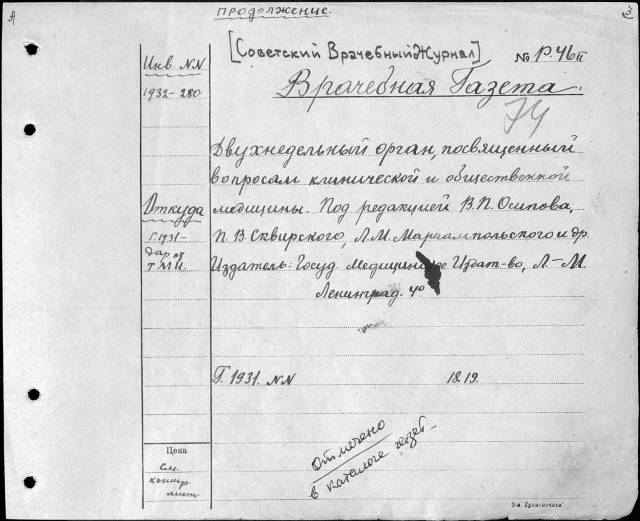 продолжение.
3
[Советский Врачебный Журнал]
№ Р. 46 II
Врачебная Газета.
74
Инв. NN
1932-280
Двухнедельный орган, посвященный
вопросам клинической и общественной
медицины. Под редакцией В.П. Осипова,
П. В. Сквирского, Л.М. Мариампольского и др.
Издатель: Госуд. Медицинское Издат-во, Л-М.
Ленинград. 4°
Откуда
Г. 1931-
дар от
Т М И.
Г. 1931. NN 18. 19.
Отмечено
в каталоге газет.
Цена
См.
контр.
лист